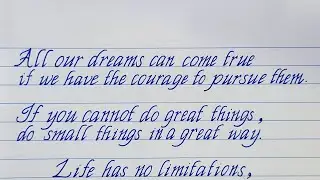 All our dreams can come true
if we have the courage to pursue them.
If you cannot do great things,
do small things in a great way.
Life has no limitations,